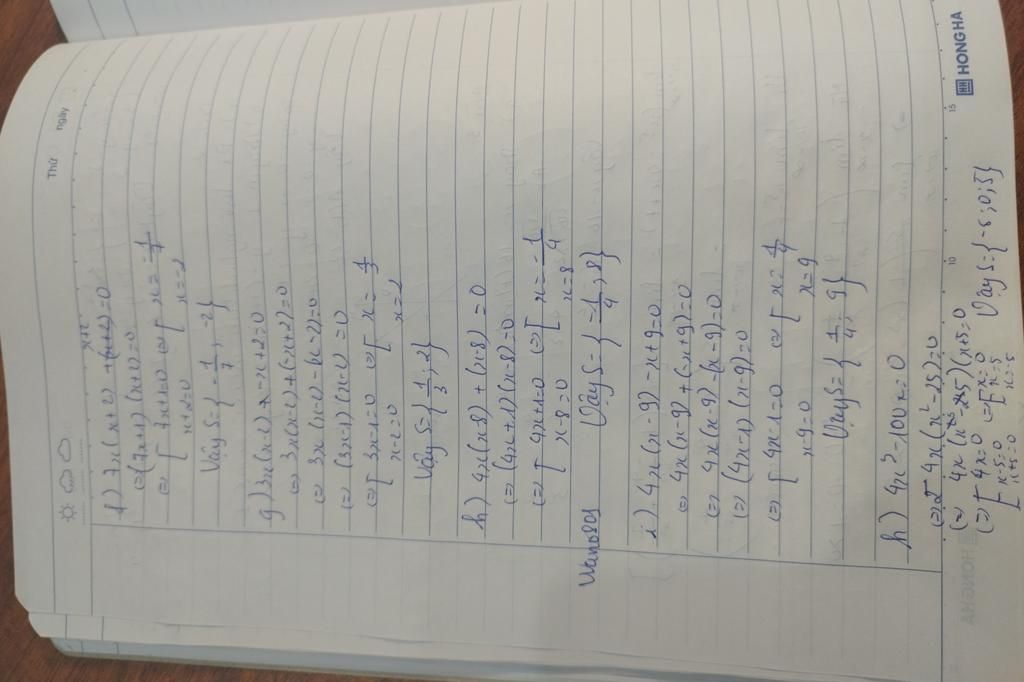 Thứ ngày
f) 7x(x+2) + (x+2) = 0
⇔ (7x+1)(x+2) = 0
⇔ [ 7x+1=0 ⇔ [ x = -1/7
x+2=0 x = -2
Vậy S = { -1/7 ; -2 }
g) 3x(x-2) - x + 2 = 0
⇔ 3x(x-2) + (-x+2) = 0
⇔ 3x(x-2) - (x-2) = 0
⇔ (3x-1)(x-2) = 0
⇔ [ 3x-1=0 ⇔ [ x = 1/3
x-2=0 x = 2
Vậy S = { 1/3 ; 2 }
h) 4x(x-8) + (x-8) = 0
⇔ (4x+1)(x-8) = 0
⇔ [ 4x+1=0 ⇔ [ x = -1/4
x-8=0 x = 8
Vậy S = { -1/4 ; 8 }
i) 4x(x-9) - x + 9 = 0
⇔ 4x(x-9) + (-x+9) = 0
⇔ 4x(x-9) - (x-9) = 0
⇔ (4x-1)(x-9) = 0
⇔ [ 4x-1=0 ⇔ [ x = 1/4
x-9=0 x = 9
Vậy S = { 1/4 ; 9 }
h) 4x² - 100x = 0
⇔ 4x(x² - 25) = 0
⇔ 4x(x-5)(x+5) = 0
⇔ [ 4x=0 ⇔ [ x=0 Vậy S = { -5 ; 0 ; 5 }
x-5=0 x=5
x+5=0 x=-5
10 15
HONG HA